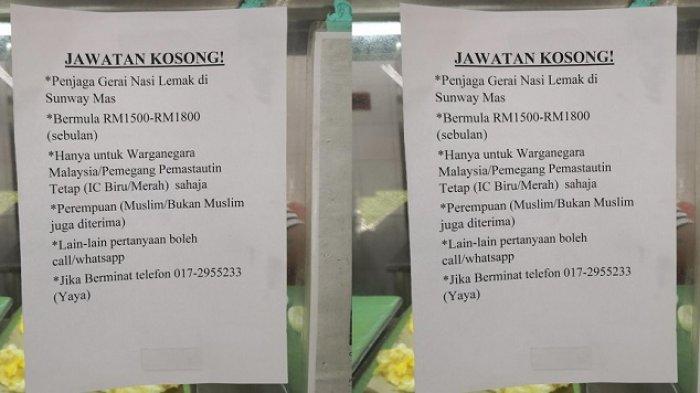 JAWATAN KOSONG!
*Penjaga Gerai Nasi Lemak di
Sunway Mas
*Bermula RM1500-RM1800
(sebulan)
*Hanya untuk Warganegara
Malaysia/Pemegang Pemastautin
Tetap (IC Biru/Merah) sahaja
*Perempuan (Muslim/Bukan Muslim
juga diterima)
*Lain-lain pertanyaan boleh
call/whatsapp
*Jika Berminat telefon 017-2955233
(Yaya)
JAWATAN KOSONG!
*Penjaga Gerai Nasi Lemak di
Sunway Mas
*Bermula RM1500-RM1800
(sebulan)
*Hanya untuk Warganegara
Malaysia/Pemegang Pemastautin
Tetap (IC Biru/Merah) sahaja
*Perempuan (Muslim/Bukan Muslim
juga diterima)
*Lain-lain pertanyaan boleh
call/whatsapp
*Jika Berminat telefon 017-2955233
(Yaya)